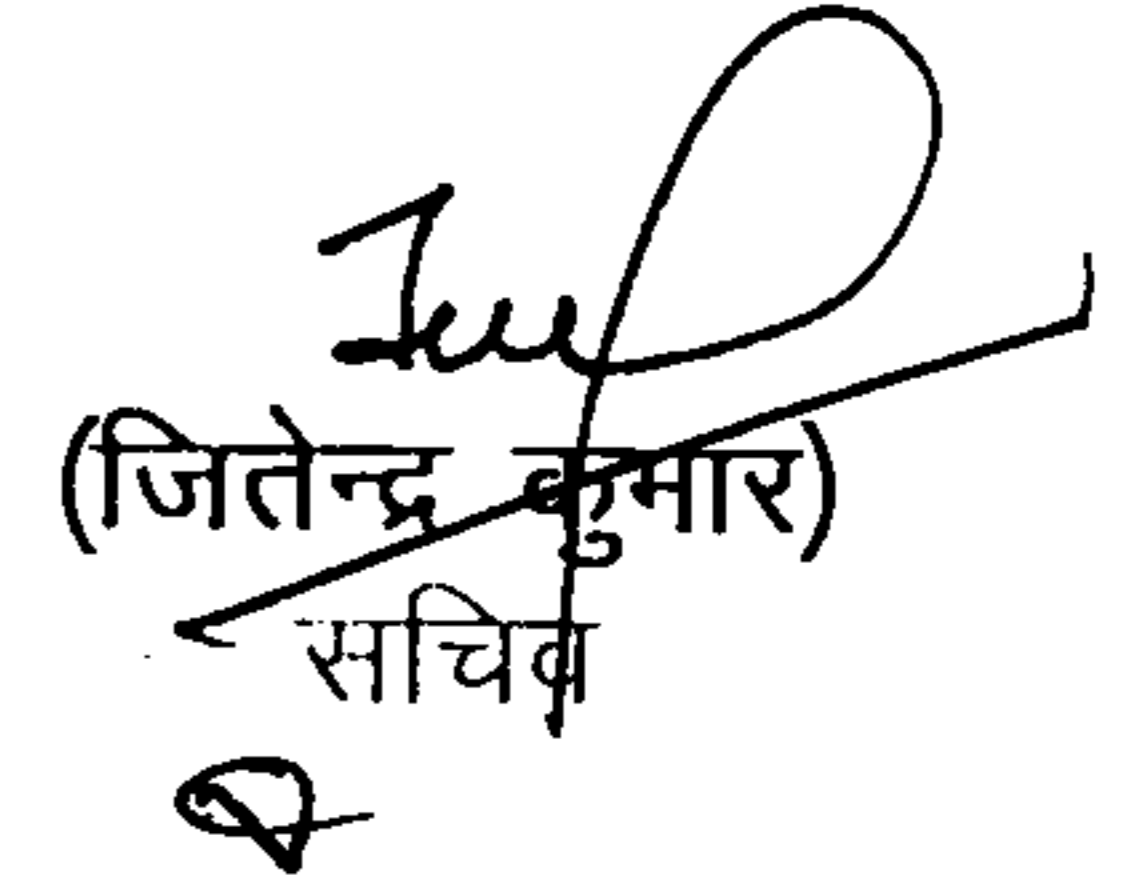 (जितेन्द्र कुमार)
सचिव